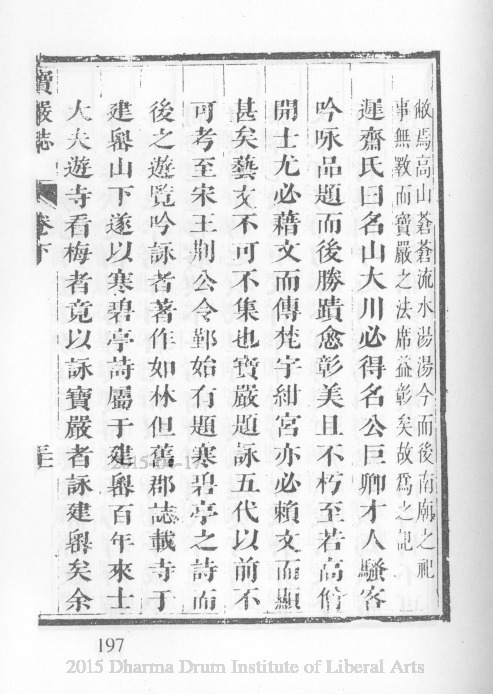 敝焉高山蒼蒼流水湯湯今而後南廟之祀
事無斁而寶嚴之法席益彰矣故爲之記
遲齋氏曰名山大川必得名公巨卿才人騷客
吟咏品題而後勝蹟愈彰美且不朽至若高僧
開士尤必藉文而傳梵宇紺宮亦必賴文而顯
甚矣藝文不可不集也寶嚴題詠五代以前不
可考至宋王荆公令鄞始有題寒碧亭之詩而
後之遊覽吟詠者著作如林但舊郡誌載寺于
建嶴山下遂以寒碧亭詩屬于建嶴百年來士
大夫遊寺看梅者竟以詠寶嚴者詠建嶴矣余
寶嚴誌
卷下
197
2015-04-17
2015 Dharma Drum Institute of Liberal Arts